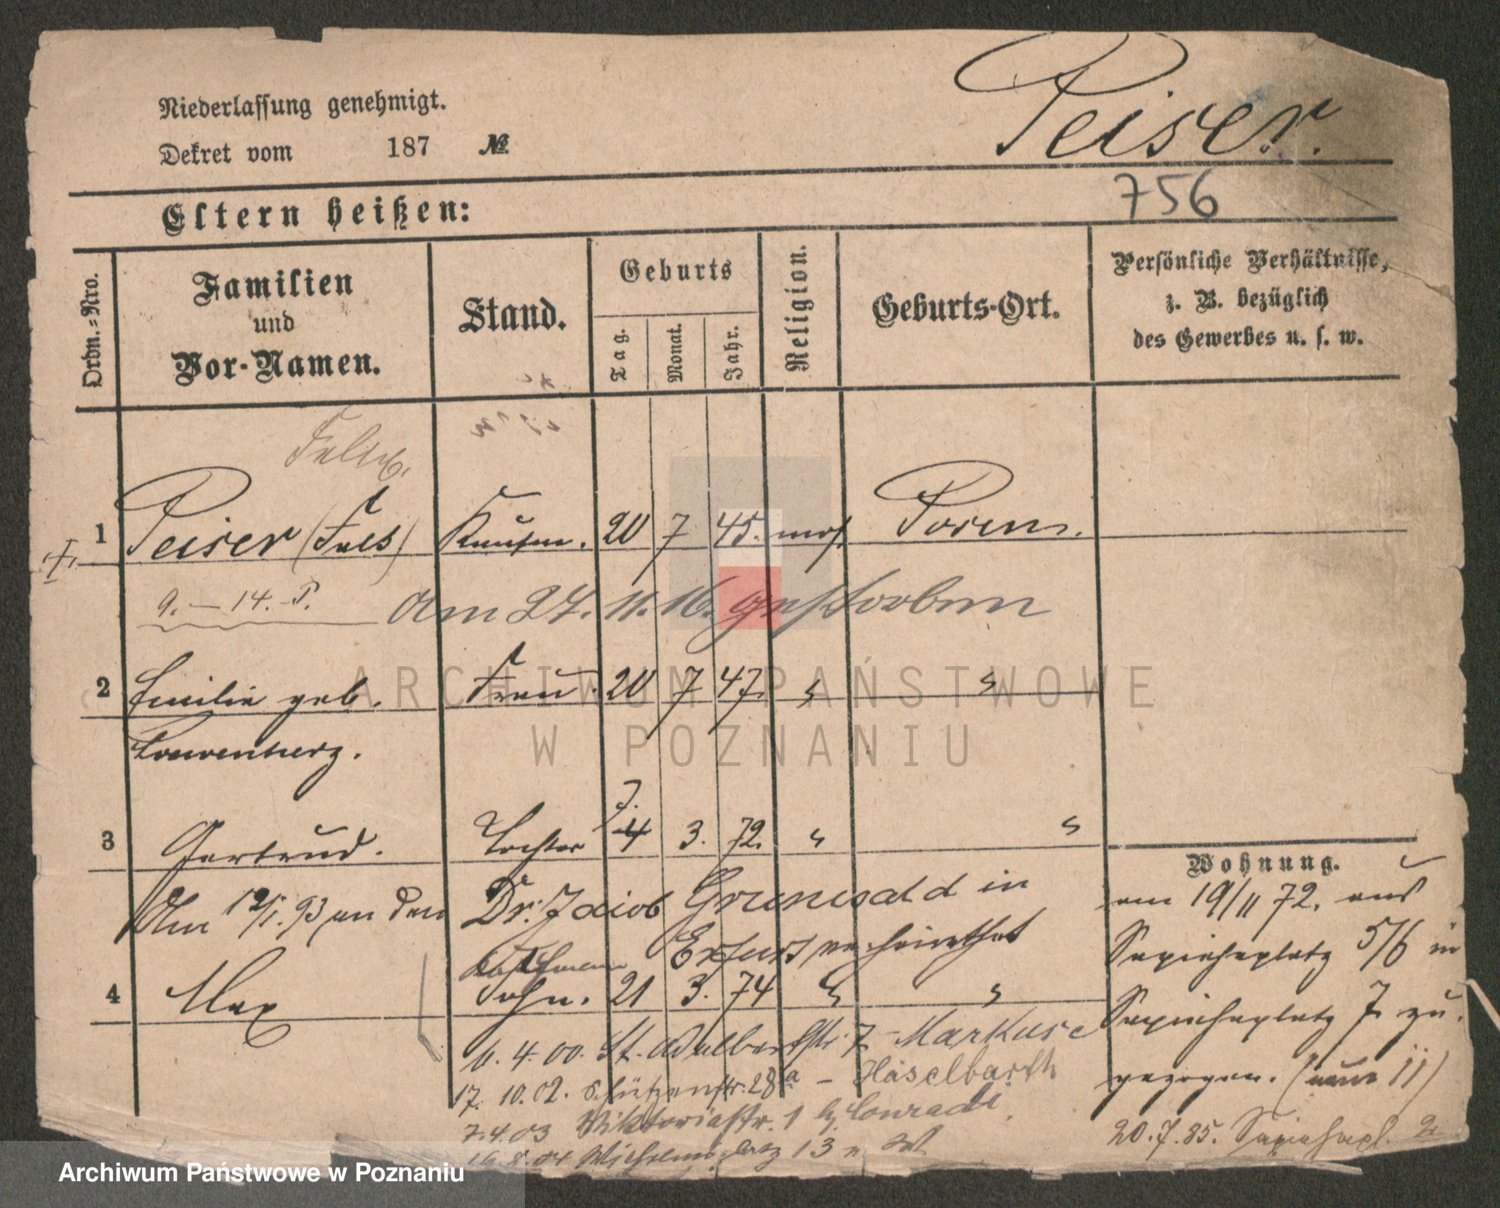 Niederlassung genehmigt.
Dekret vom 187 №
Peiser.
756
Eltern heißen:
Ordn.=Nro.
Familien
und
Vor-Namen.
Stand.
Geburts
Tag.
Monat.
Jahr.
Religion.
Geburts-Ort.
Persönliche Verhältnisse,
z. B. bezüglich
des Gewerbes u. s. w.
1 Peiser Kaufm. 20 7 45. mos. Posen.
9. — 14. P. Am 27. 11. 16. gestorben
2 Emilie geb. Frau. 20 7 47. " "
Loewenberg.
3 Gertrud. Tochter 4 3. 72. " "
Am 12/1. 93 an den Dr. Jacob Grunwald in
Erfurt verheirathet
Kaufmann
4 Max Sohn. 21 3. 74 " "
Wohnung.
am 19/11 72. aus
Sapiehaplatz 5/6 in
Sapiehaplatz 7 zu-
gezogen.
20.7.85.
4. 00. St. Adalbertstr. 7 - Markuse
17. 10. 02. Schützenstr. 28a - Haselbarth
7.4.03 Viktoriastr. 1 b. Conradi.
Wilhelmsplatz 13
ARCHIWUM PAŃSTWOWE
W POZNANIU
Archiwum Państwowe w Poznaniu